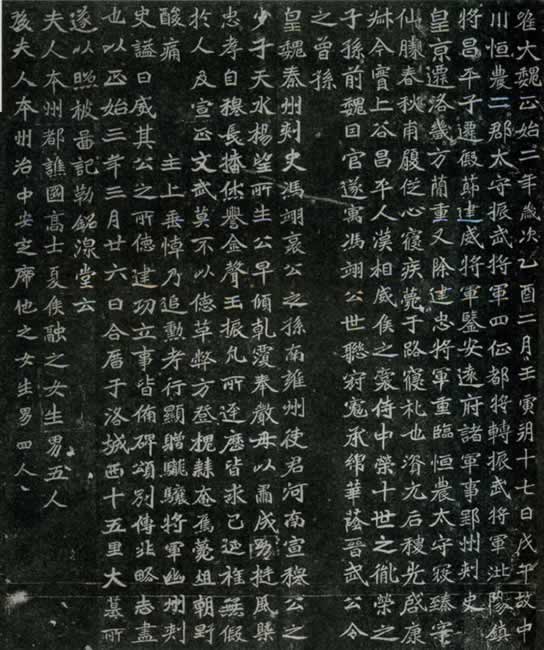 唯大魏正始二年歲次乙酉二月壬寅朔十七日戊午故中
川恒農二郡太守振武將軍四征都將轉振武將軍沘陽鎮
將昌平子遷假節建威將軍鑒安遠府諸軍事郢州刺史
皇京遷洛畿方簡重又除建忠將軍重臨恒農太守寇臻字
仙勝春秋甫履從心寢疾薨于路寢礼也資元后稷光啓康
叔今實上谷昌平人漢相威侯之裔侍中榮十世之胤榮之
子孫前魏因官遂寓馮翊公世聯承綿華蔭晉武公令
之曾孫
皇魏秦州刺史馮翊哀公之孫南雍州使君河南宣穆公之
少子天水楊望所生公早傾乾覆奉嚴母以肅成勁挺風槩
忠孝自穆長播休譽金聲玉振凡所逕歷皆求己延無假
於人及宣正文武莫不以德草弊方登槐棘奄焉薨殂朝野
酸痛 主上垂悼乃追勳考行顯贈龍驤將軍幽州刺
史謚曰威其公之所德建功立事皆備碑頌別傳非略志盡
也以正始三年三月廿六日合厝于洛城西十五里大墓所
遂以照被啚記勒銘湶堂云
夫人本州都譙國高士夏侯融之女生男五人
後夫人本州治中安定席他之女生男四人